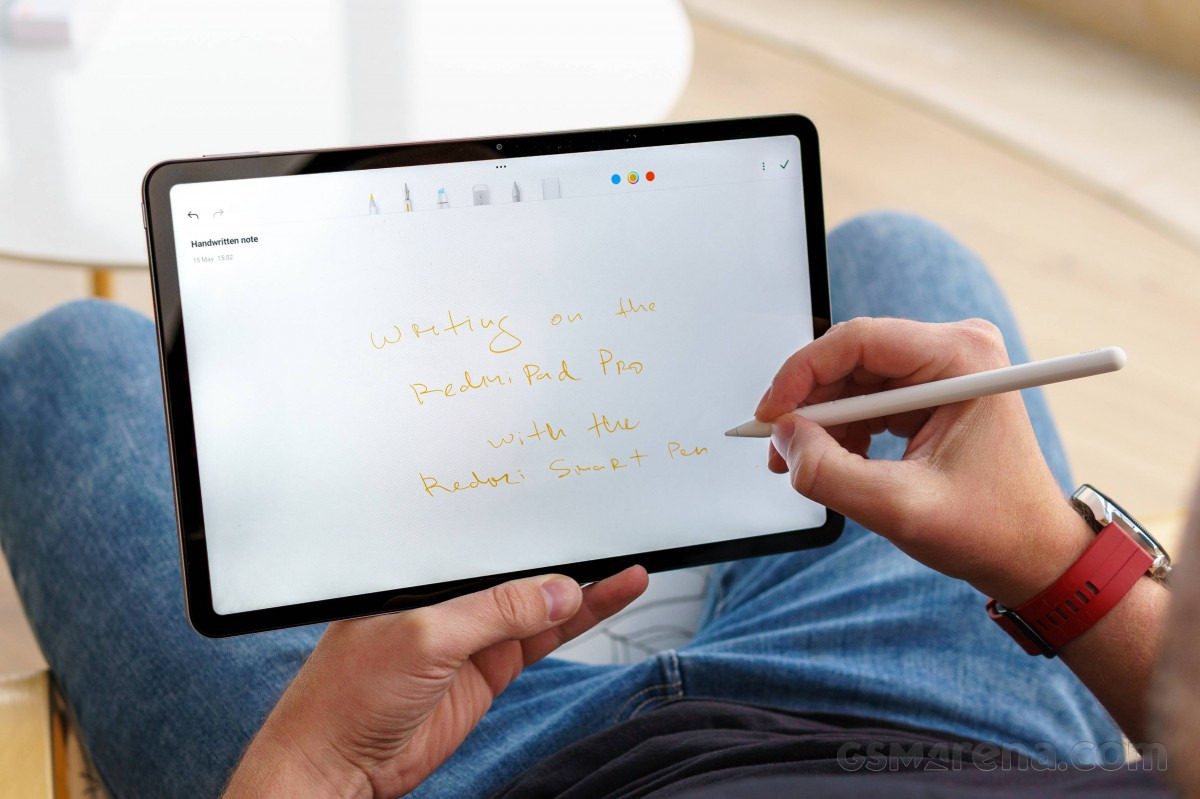 Handwritten note
15 May 15:02
Writing on the
Redmi Pad Pro
with the
Redmi Smart Pen
GSMArena.com